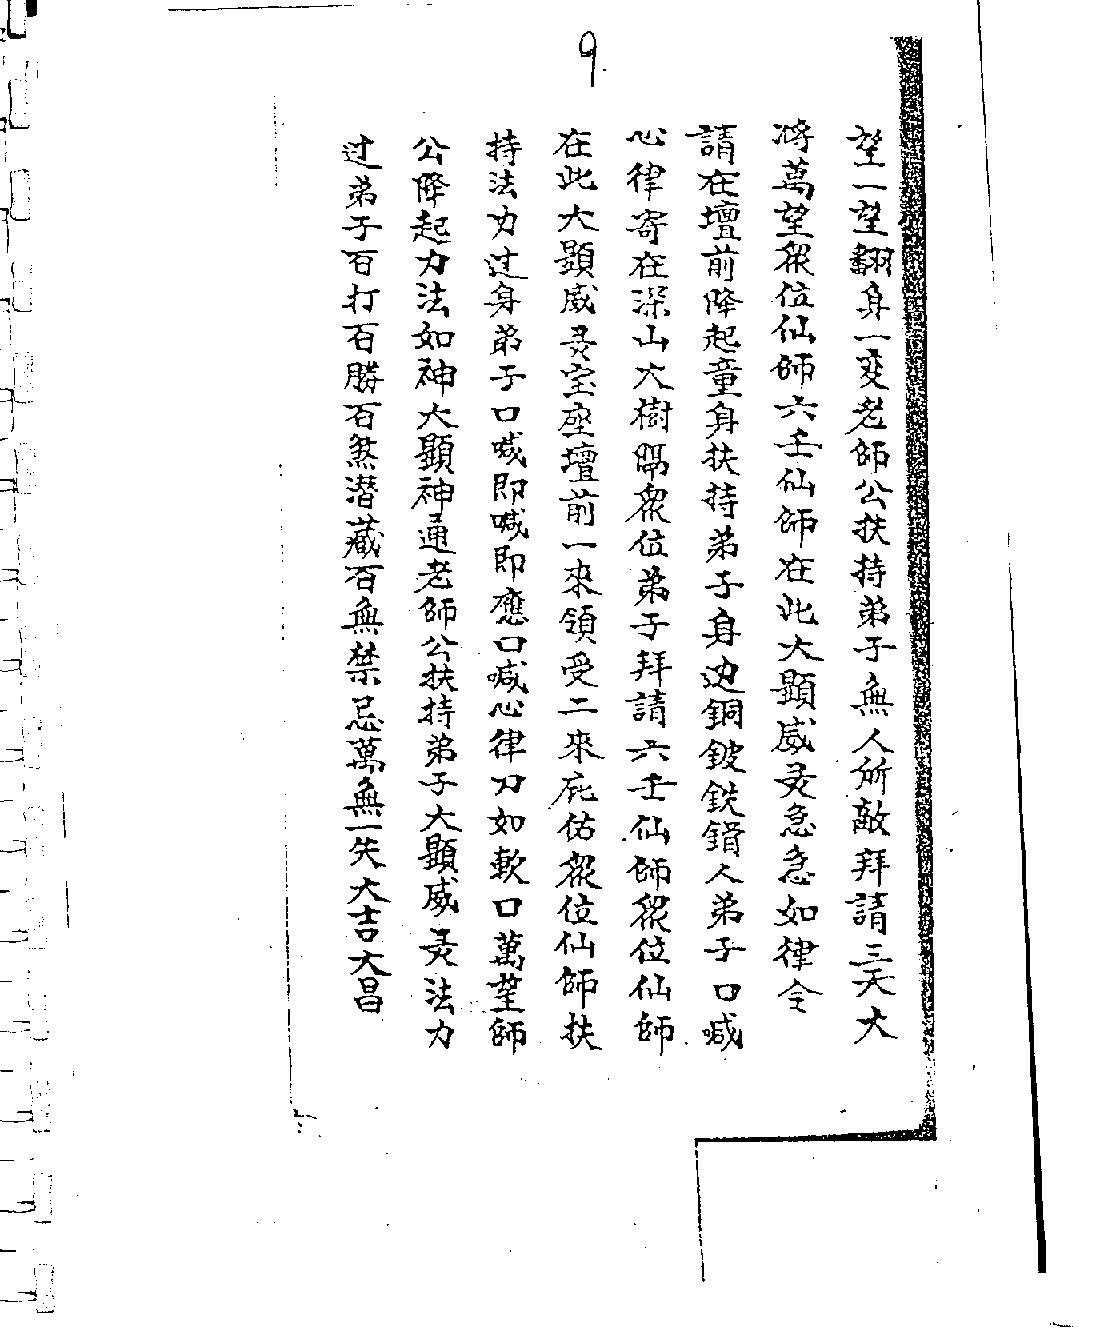 9
望一望翻身一变老師公扶持弟子無人所敵拜請三天大
將萬望衆位仙師六壬仙師在此大顕威灵急急如律令
請在壇前降起童身扶持弟子身边銅鈹銑鎖人弟子口喊
心律寄在深山大樹腳衆位弟子拜請六壬仙師衆位仙師
在此大顕威灵宝座壇前一來領受二來庇佑衆位仙師扶
持法力过身弟子口喊即喊即應口喊心律刀如軟口萬望師
公降起力法如神大顕神通老師公扶持弟子大顕威灵法力
过弟子百打百勝百煞潜藏百無禁忌萬無一失大吉大昌